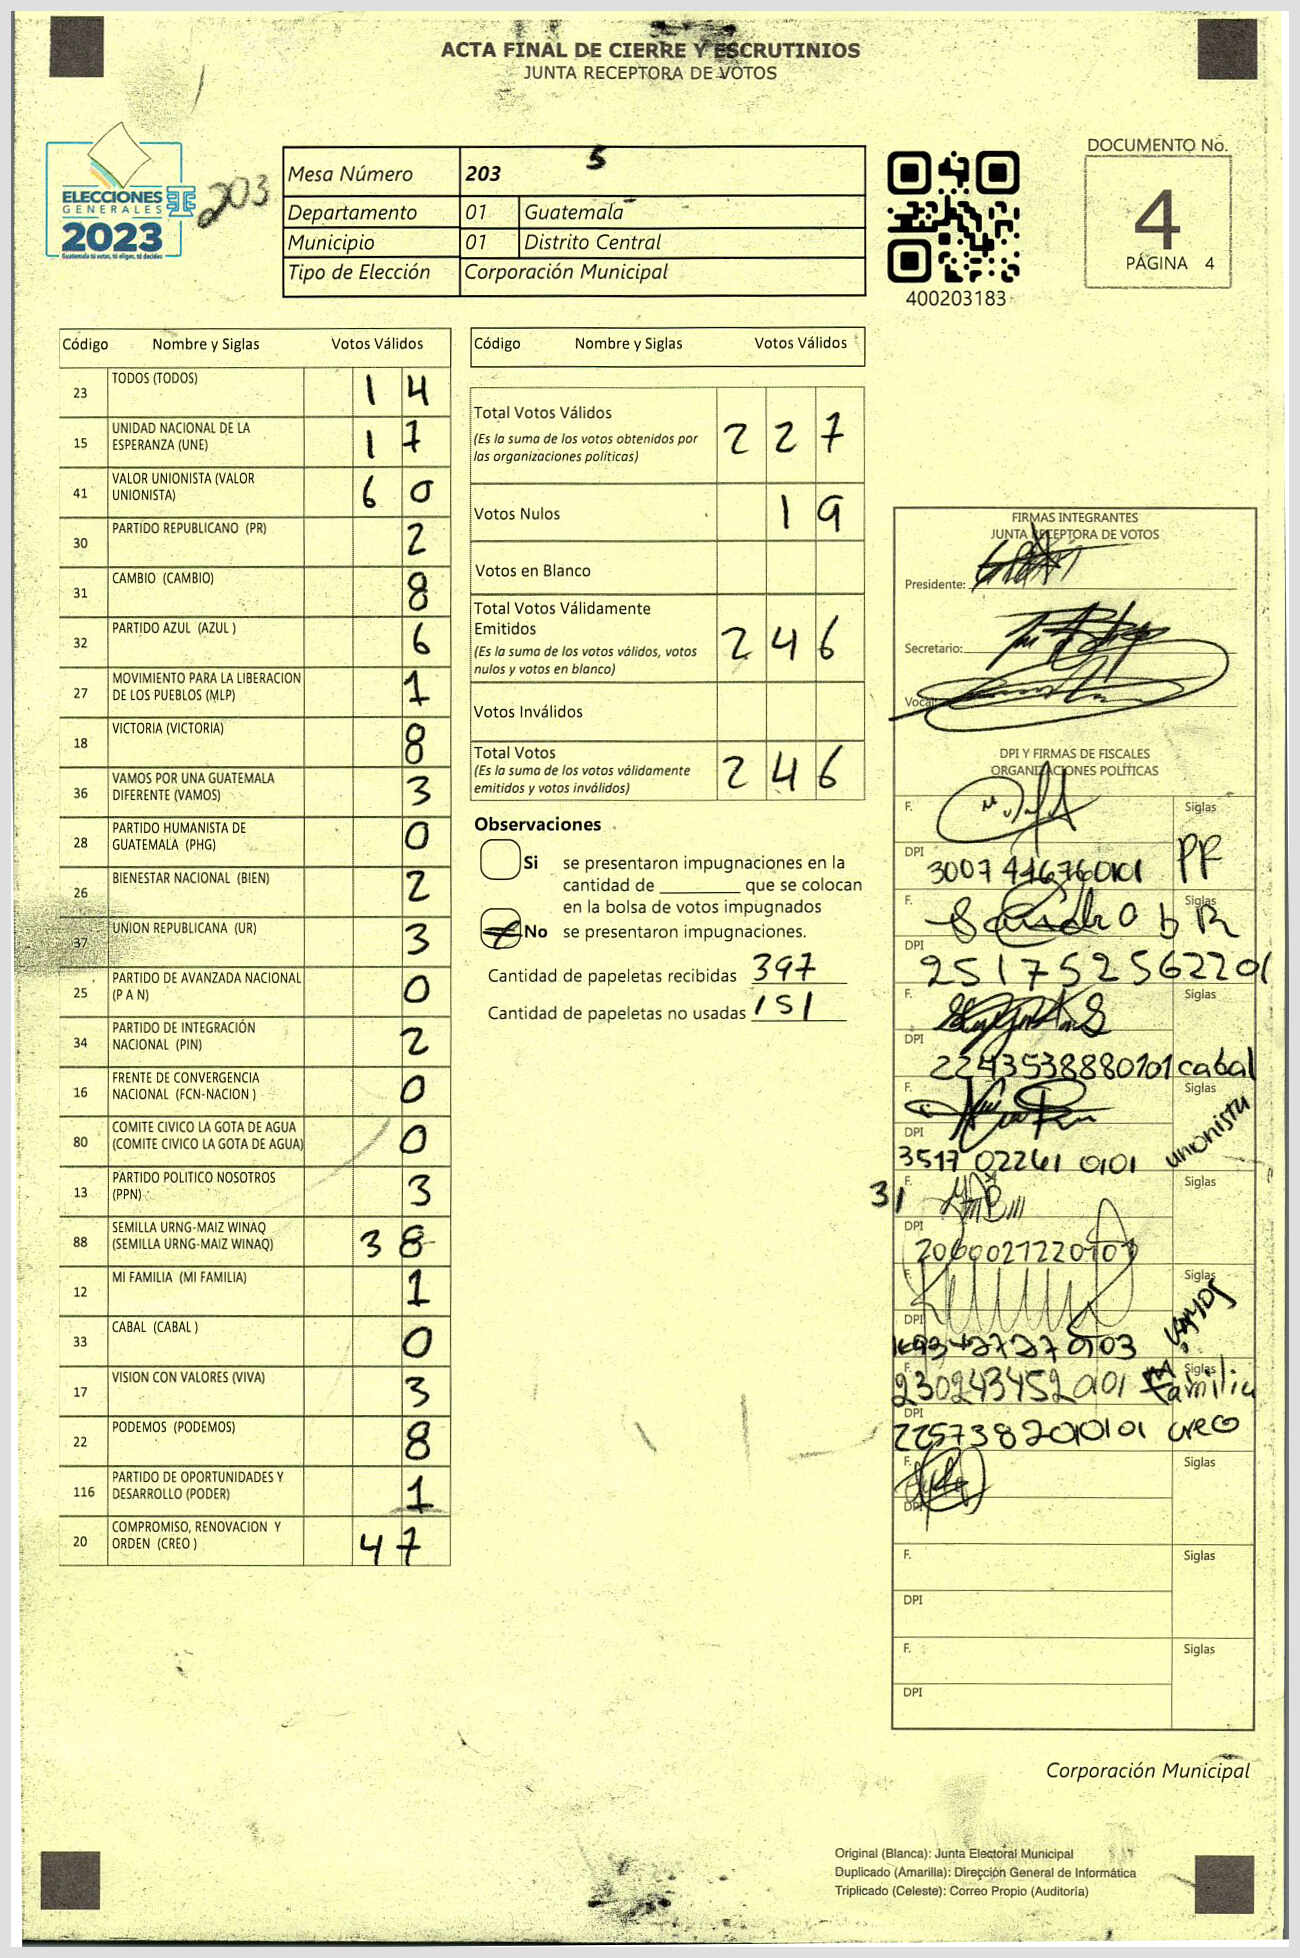 ACTA FINAL DE CIERRE Y ESCRUTINIOS
JUNTA RECEPTORA DE VOTOS
ELECCIONES
GENERALES
2023
Guatemala tú votas, tú eliges, tú decides
203
Mesa Número 203 5
Departamento 01 Guatemala
Municipio 01 Distrito Central
Tipo de Elección Corporación Municipal
400203183
DOCUMENTO No.
4
PÁGINA 4
Código Nombre y Siglas Votos Válidos
23 TODOS (TODOS) 1 4
15 UNIDAD NACIONAL DE LA ESPERANZA (UNE) 1 7
41 VALOR UNIONISTA (VALOR UNIONISTA) 6 0
30 PARTIDO REPUBLICANO (PR) 2
31 CAMBIO (CAMBIO) 8
32 PARTIDO AZUL (AZUL ) 6
27 MOVIMIENTO PARA LA LIBERACION DE LOS PUEBLOS (MLP) 1
18 VICTORIA (VICTORIA) 8
36 VAMOS POR UNA GUATEMALA DIFERENTE (VAMOS) 3
28 PARTIDO HUMANISTA DE GUATEMALA (PHG) 0
26 BIENESTAR NACIONAL (BIEN) 2
37 UNION REPUBLICANA (UR) 3
25 PARTIDO DE AVANZADA NACIONAL (P A N) 0
34 PARTIDO DE INTEGRACIÓN NACIONAL (PIN) 2
16 FRENTE DE CONVERGENCIA NACIONAL (FCN-NACION ) 0
80 COMITE CIVICO LA GOTA DE AGUA (COMITE CIVICO LA GOTA DE AGUA) 0
13 PARTIDO POLITICO NOSOTROS (PPN) 3
88 SEMILLA URNG-MAIZ WINAQ (SEMILLA URNG-MAIZ WINAQ) 3 8
12 MI FAMILIA (MI FAMILIA) 1
33 CABAL (CABAL ) 0
17 VISION CON VALORES (VIVA) 3
22 PODEMOS (PODEMOS) 8
116 PARTIDO DE OPORTUNIDADES Y DESARROLLO (PODER) 1
20 COMPROMISO, RENOVACION Y ORDEN (CREO ) 4 7
Código Nombre y Siglas Votos Válidos
Total Votos Válidos 2 2 7
(Es la suma de los votos obtenidos por
las organizaciones politicas)
Votos Nulos 1 9
Votos en Blanco
Total Votos Válidamente
Emitidos 2 4 6
(Es la suma de los votos válidos, votos
nulos y votos en blanco)
Votos Inválidos
Total Votos 2 4 6
(Es la suma de los votos válidamente
emitidos y votos inválidos)
Observaciones
Si se presentaron impugnaciones en la
cantidad de ________ que se colocan
en la bolsa de votos impugnados
No se presentaron impugnaciones.
Cantidad de papeletas recibidas 397
Cantidad de papeletas no usadas 151
FIRMAS INTEGRANTES
JUNTA RECEPTORA DE VOTOS
Presidente:
Secretario:
Vocal:
DPI Y FIRMAS DE FISCALES
ORGANIZACIONES POLÍTICAS
F. Siglas
DPI 3007 446760101
F. Siglas
DPI 251752562201
F. Siglas
DPI 2243538880101 cabal
F. Siglas
DPI 3517 02261 0101 unionista
31
F. Siglas
DPI
F. Siglas
DPI
vamos
F. Siglas
2302434520101 Familia
DPI
2257382010101 creo
F. Siglas
DPI
F. Siglas
DPI
F. Siglas
DPI
Corporación Municipal
Original (Blanca): Junta Electoral Municipal
Duplicado (Amarilla): Dirección General de Informática
Triplicado (Celeste): Correo Propio (Auditoría)